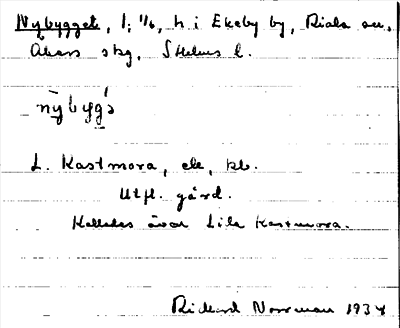 Nybygget, 1; 1/6, h. i Ekeby by, Riala sn,
Åkers skg, Sthlms l.
nȳbygg's
L. Kastmora, ek, kb.
Utfl. gård.
Kallades även Lilla Kastmora.
Rickard Norrman 1934